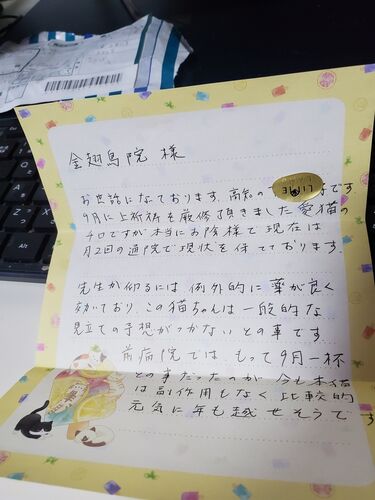 金翅鳥院 様
お世話になっております。高知の
LIME
です
9月に上祈祷を厳修頂きました愛猫の
チロですが本当にお陰様で現在は
月2回の通院で現状を保てております。
先生が仰るには 例外的に薬が良く
効いており、この猫ちゃんは一般的な
見立ての予想がつかないとの事です
前病院では、もって9月一杯
との事だったのが 今も
は副作用もなく 比較的
元気に年も越せそうです